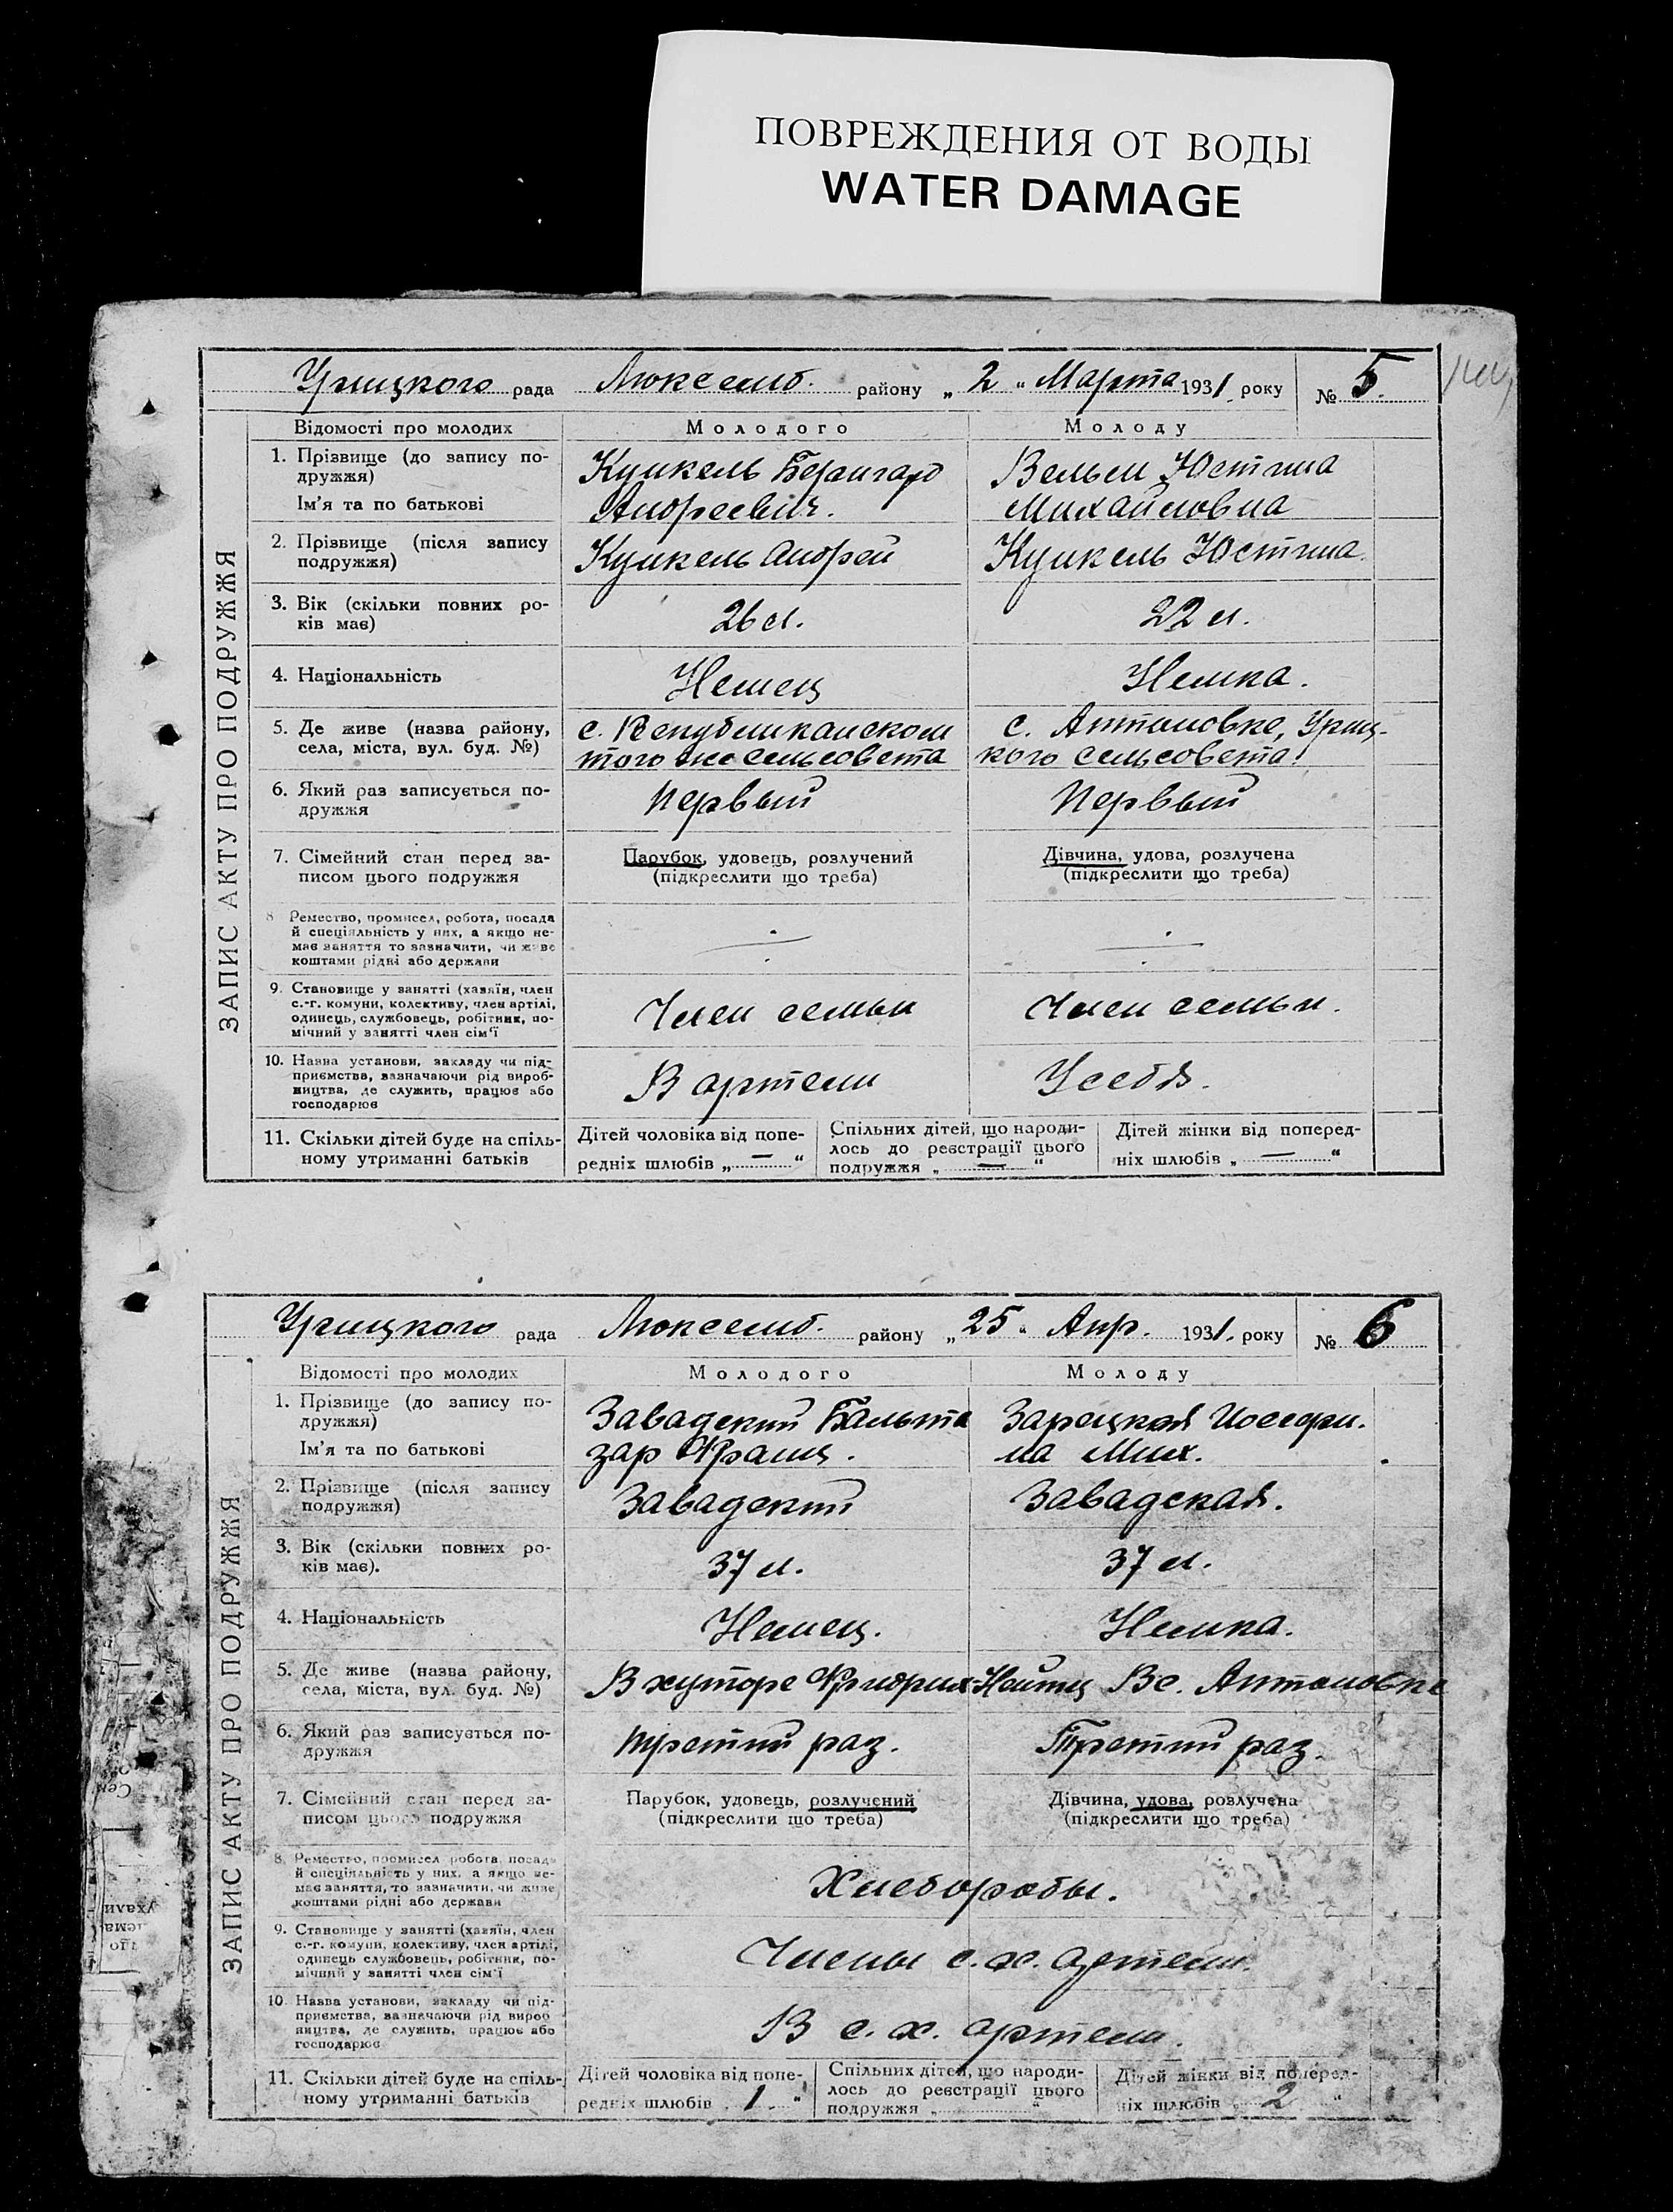 ПОВРЕЖДЕНИЯ ОТ ВОДЫ
WATER DAMAGE
Урицкого рада Люксемб. району „ 2 " Марта 1931 року № 5.
Відомості про молодих Молодого Молоду
1. Прізвище (до запису по-
дружжя)
Кункель Бернгард Вельм Юстина
Ім'я та по батькові Андреевич. Михайловна
2. Прізвище (після запису
подружжя)
Кункель Андрей Кункель Юстина
3. Вік (скільки повних ро-
ків має)
26 л. 22 л.
4. Національність Немец Немка.
5. Де живе (назва району,
села, міста, вул. буд. №)
с. Републиканском с. Антоновке, Уриц-
того же сельсовета кого сельсовета
6. Який раз записується по-
дружжя
Первый Первый
7. Сімейний стан перед за-
писом цього подружжя
Парубок, удовець, розлучений Дівчина, удова, розлучена
(підкреслити що треба) (підкреслити що треба)
8 Ремество, промисел, робота, посада
й спеціяльність у них, а якщо не-
має заняття то зазначити, чи живе
коштами рідні або держави
9. Становище у занятті (хазяїн, член
с.-г. комуни, колективу, член артілі,
одинець, службовець, робітник, по-
мічний у занятті член сім'ї
Член семьи Член семьи.
10. Назва установи, закладу чи під-
приємства, зазначаючи рід вироб-
ництва, де служить, працює або
господарює
В артели У себя.
11. Скільки дітей буде на спіль-
ному утриманні батьків
Дітей чоловіка від попе-
редніх шлюбів „ — "
Спільних дітей, що народи-
лось до реєстрації цього
подружжя „ — "
Дітей жінки від поперед-
ніх шлюбів „ — "
ЗАПИС АКТУ ПРО ПОДРУЖЖЯ
Урицкого рада Люксемб. району „ 25 " Апр. 1931. року № 6
Відомості про молодих Молодого Молоду
1. Прізвище (до запису по-
дружжя)
Завадский Бальта Зарецкая Иосефи-
Ім'я та по батькові зар Франц. на Мих.
2. Прізвище (після запису
подружжя)
Завадский Завадская.
3. Вік (скільки повних ро-
ків має).
37 л. 37 л.
4. Національність Немец. Немка.
5. Де живе (назва району,
села, міста, вул. буд. №)
В хуторе Фридрих В с. Антоновке
6. Який раз записується по-
дружжя
третий раз. Третий раз.
7. Сімейний стан перед за-
писом цього подружжя
Парубок, удовець, розлучений Дівчина, удова, розлучена
(підкреслити що треба) (підкреслити що треба)
8. Ремество, промисел робота, посада
й спеціяльність у них, а якщо не-
має заняття, то зазначити, чи живе
коштами рідні або держави
Хлеборобы.
9. Становище у занятті (хазяїн, член
с.-г. комуни, колективу, член артілі,
одинець службовець, робітник, по-
мічний у занятті член сім'ї
Члены с.х. артели.
10. Назва установи, закладу чи під-
приємства, зазначаючи рід вироб
ництва, де служить, працює або
господарює
В с. х. артели.
11. Скільки дітей буде на спіль-
ному утриманні батьків
Дітей чоловіка від попе-
редніх шлюбів „ 1. "
Спільних дітей, що народи-
лось до реєстрації цього
подружжя „ "
Дітей жінки від поперед-
ніх шлюбів „ 2 "
ЗАПИС АКТУ ПРО ПОДРУЖЖЯ